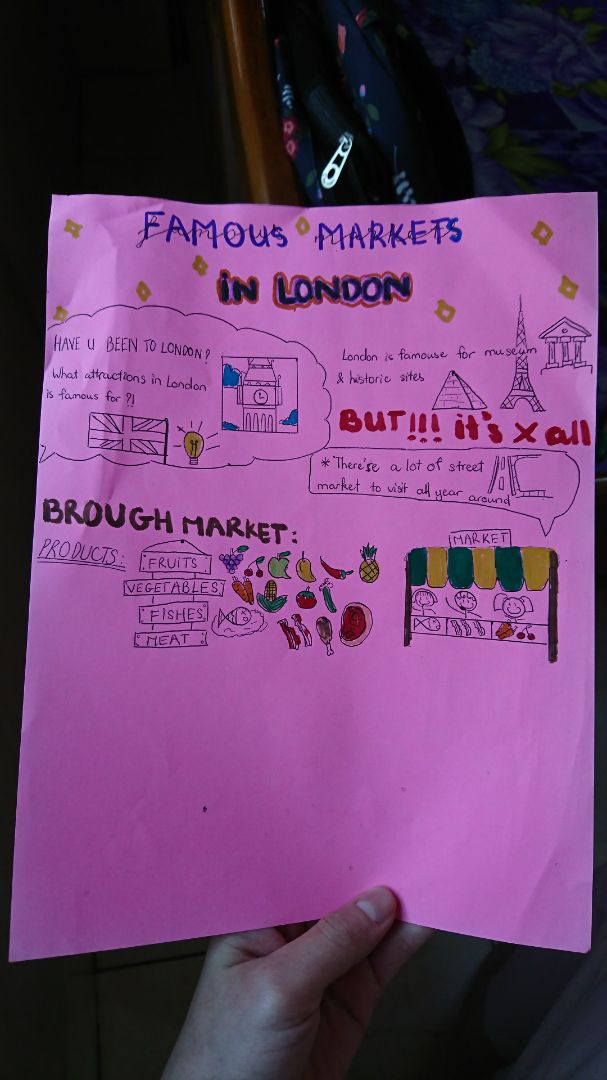 FAMOUS MARKETS
IN LONDON
HAVE U BEEN TO LONDON?
What attractions in London
is famous for ?!
London is famouse for museum
& historic sites
BUT!!! it's X all
* There'se a lot of street
market to visit all year around
BROUGH MARKET:
PRODUCTS:
FRUITS
VEGETABLES
FISHES
MEAT
MARKET